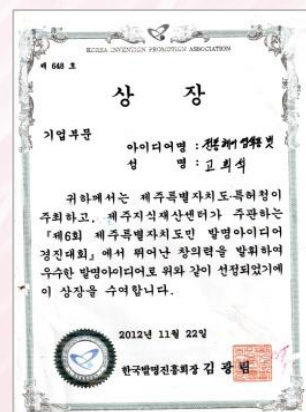 KOREA INVENTION PROMOTION ASSOCIATION
제 648 호
상 장
기업부문
아이디어명 :
성 명 : 고희석
귀하께서는 제주특별자치도·특허청이
주최하고, 제주지식재산센터가 주관하는
『제6회 제주특별자치도민 발명아이디어
경진대회』에서 뛰어난 창의력을 발휘하여
우수한 발명아이디어로 위와 같이 선정되었기에
이 상장을 수여합니다.
2012년 11월 22일
한국발명진흥회장 김광림